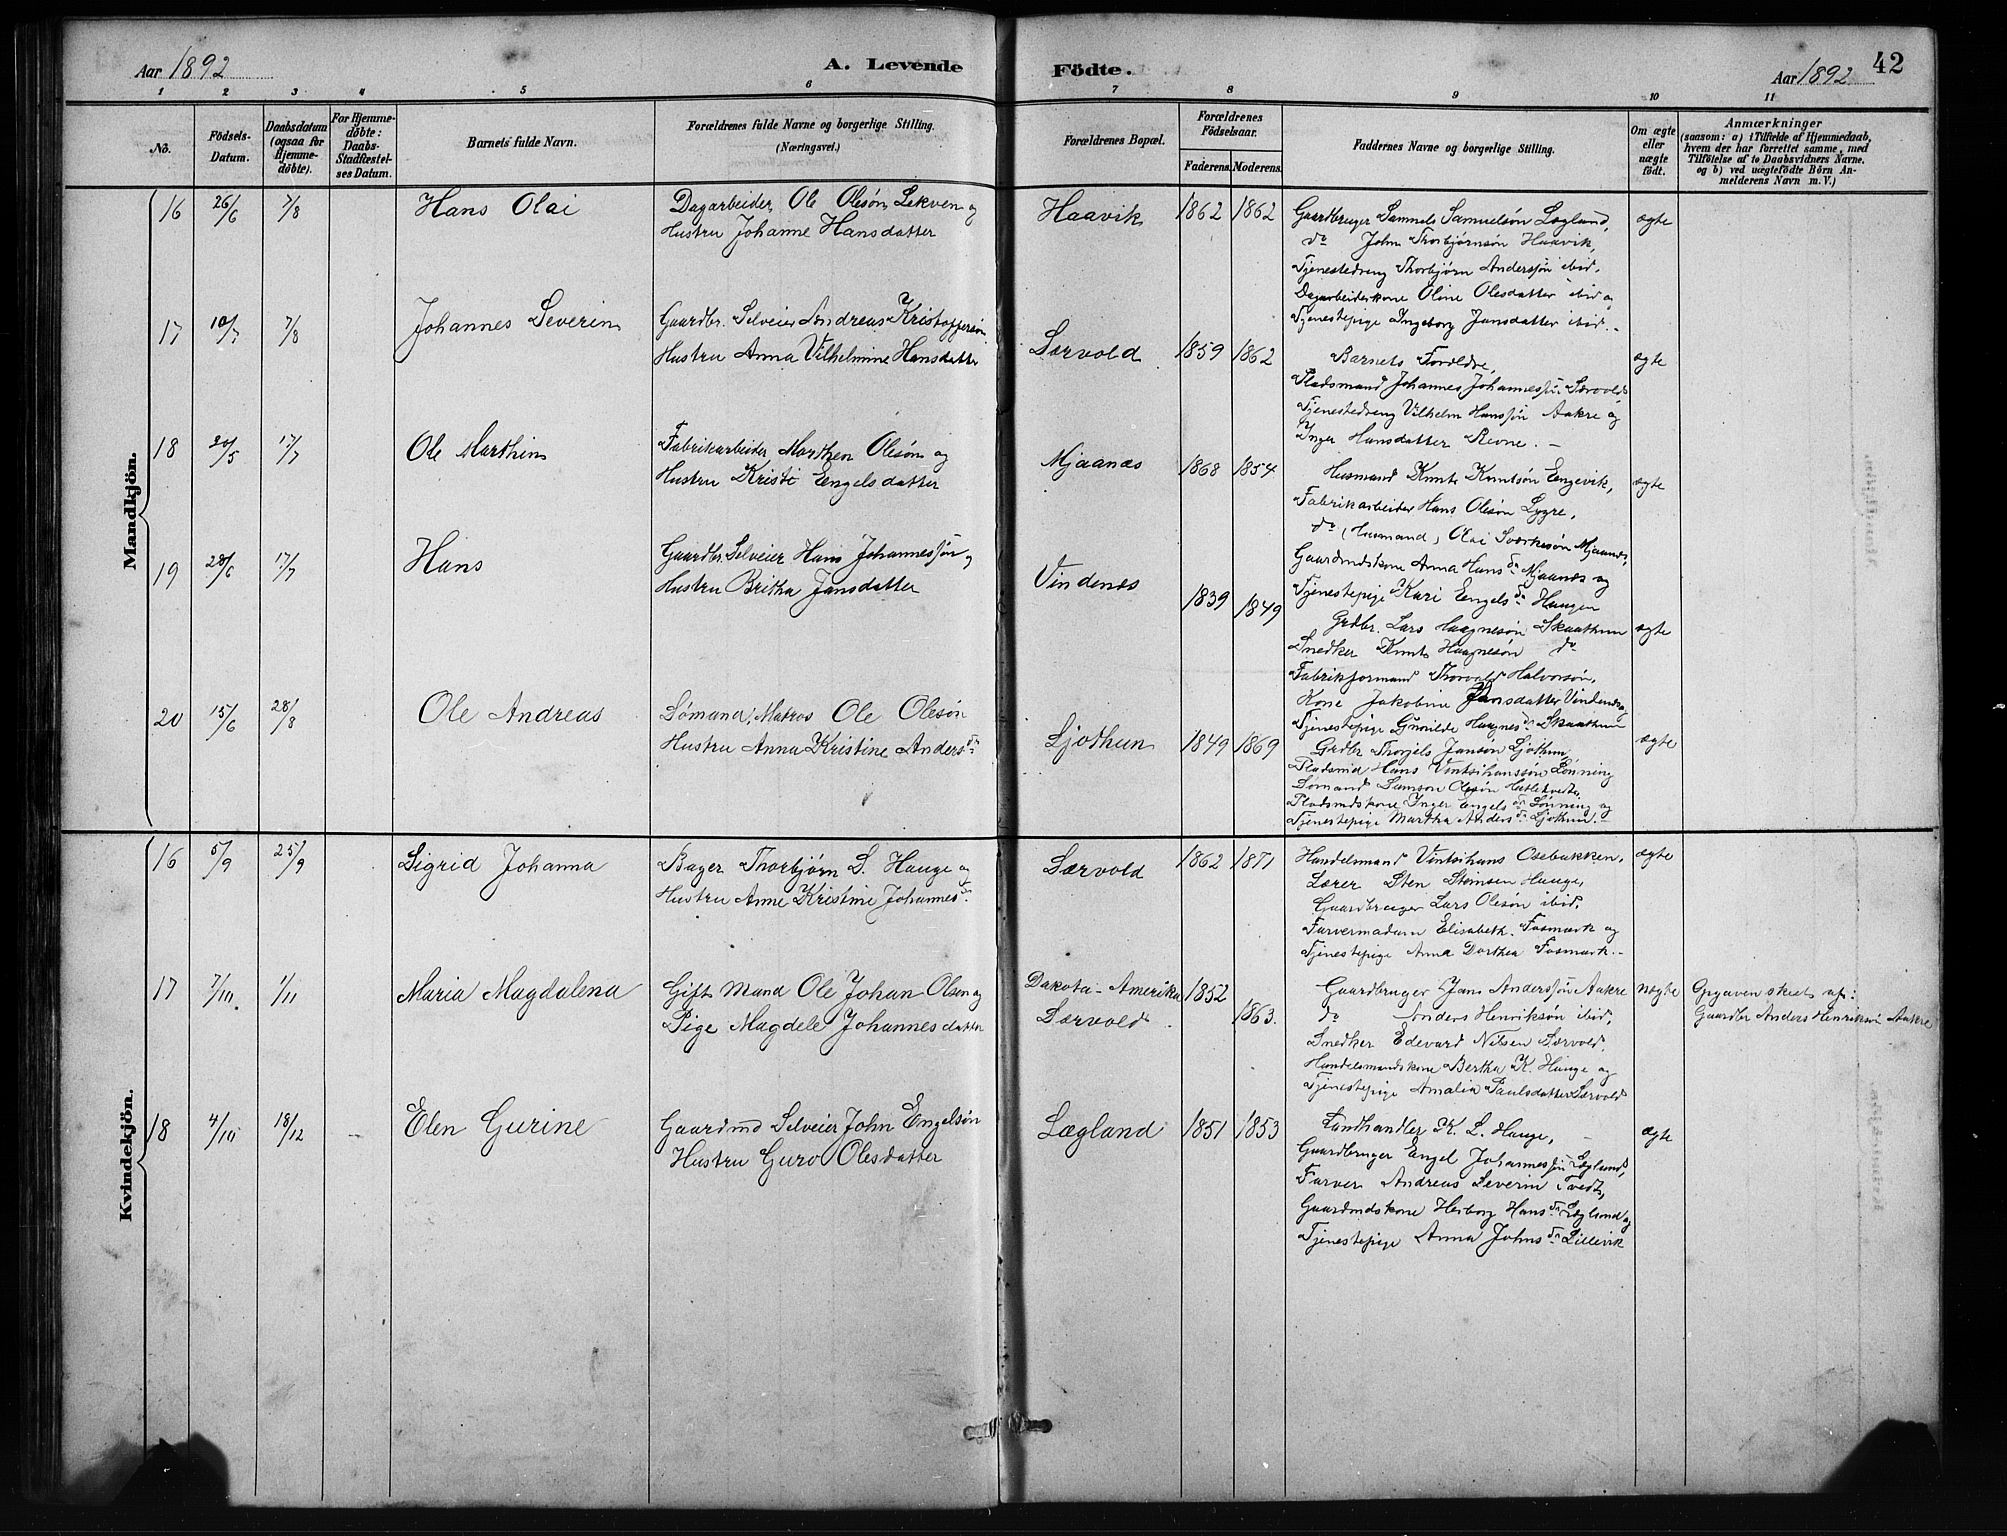 Aar 1892
A. Levende Födte.
Aar 1892
42
1 2 3 4 5 6 7 8 9 10 11
No.
Födsels-Datum.
Daabsdatum (ogsaa for Hjemmedöbte).
For Hjemmedöbte: Daabs-Stadfæstelses Datum.
Barnets fulde Navn.
Forældrenes fulde Navne og borgerlige Stilling. (Næringsvei.)
Forældrenes Bopæl.
Forældrenes Födselsaar.
Faderens. Moderens.
Faddernes Navne og borgerlige Stilling.
Om ægte eller uægte födt.
Anmærkninger
(saasom: a) i Tilfælde af Hjemmedaab,
hvem der har forrettet samme, med
Tilföielse af to Daabsvidners Navne.
og b) ved uægtefödte Börn Anmelderens Navn m. V.)
Mandkjön.
16 26/6 7/8 Hans Olai
Dagarbeider Ole Olesön Lekven og
Hustru Johanne Hansdatter
Haavik 1862 1862
Gaardbruger Samuels Samuelsön Lægland,
do John Thorbjörnsön Haavik,
Tjenestedreng Thorbjörn Andersön ibid.
Dagarbeiderkone Oline Olesdatter ibid og
Tjenestepige Ingeborg Jansdatter ibid.
ægte
17 10/7 7/8 Johannes Severin
Gaardbr. Selveier Andreas Kristoffersön
Hustru Anna Vilhelmine Hansdatter
Særvold 1859 1862
Barnets Foreldre,
Pladsmand Johannes Johannessön Særvold
Tjenestedreng Vilhelm Hanssön Aakre og
Inger Hansdatter Revne.
ægte
18 20/5 17/7 Ole Marthin
Fabrikarbeider Marthen Olesön og
Hustru Kristi Engelsdatter
Mjaanæs 1868 1854
Husmand Knut Knutsön Engevik,
Fabrikarbeider Hans Olesön Lygre,
do (Husmand) Olai Sverkesön Mjaanæs,
Gaardmdskone Anna Hansdr Mjaanæs og
Tjenestepige Kari Engelsdr Haugen
ægte
19 28/6 17/7 Hans
Gaardbr. Selveier Hans Johannessön og
Hustru Britha Jansdatter
Vindenæs 1839 1849
Grdbr. Lars Haagnesön Skaathun
Snedker Knut Haagnesön do
Fabrikformand Thorvald Halvorsön,
Kone Jakobine Jansdatter Vindenæs,
Tjenestepige Gunilde Haagnesdr Skaathun
ægte
20 15/6 28/8 Ole Andreas
Sömand, Matros Ole Olesön
Hustru Anna Kristine Andersdr
Ljothun 1849 1869
Grdbr Thorjels Jansön Ljothun,
Pladsmd Hans Vintsihanssön Lönning
Sömand Samson Olesön
Pladsmdskone Inger Engelsdr Lönning og
Tjenestepige Martha Andersdr Ljothun.
ægte
Kvindekjön.
16 5/9 25/9 Sigrid Johanna
Bager Thorbjörn S. Hauge og
Hustru Anne Kristine Johannesdr
Særvold 1862 1871
Handelsmand Vintsihans Osebakken,
Lærer Sten Steinsen Hauge,
Gaardbruger Lars Olesön ibid,
Farvermadam Elisabeth Fosmark og
Tjenestepige Anna Dorthea Fosmark.
ægte
17 7/10. 1/11 Maria Magdalena
Gift Mand Ole Johan Olsen og
Pige Magdele Johannesdatter
Dakota-Amerika 1852
Særvold 1863.
Gaardbruger Jans Anderssön Aakre
do Anders Henriksön ibid,
Snedker Edevard Nilsen Særvold,
Handelsmandskone Bertha K. Hauge og
Tjenestepige Amalia Paulsdatter Særvold
uægte
Opgaven skeet af:
Gaardbr Anders Henriksön Aakre
18 4/10 18/12 – Elen Gurine
Gaardmd Selveier John Engelsön
Hustru Guro Olesdatter
Lægland 1851 1853
Landhandler K. L. Hauge,
Gaardbruger Engel Johannessön Lægland,
Farver Andreas Severin Tvedt,
Gaardmdskone Herborg Hansdr Lægland og
Tjenestepige Anna Johnsdr Lillevik
ægte